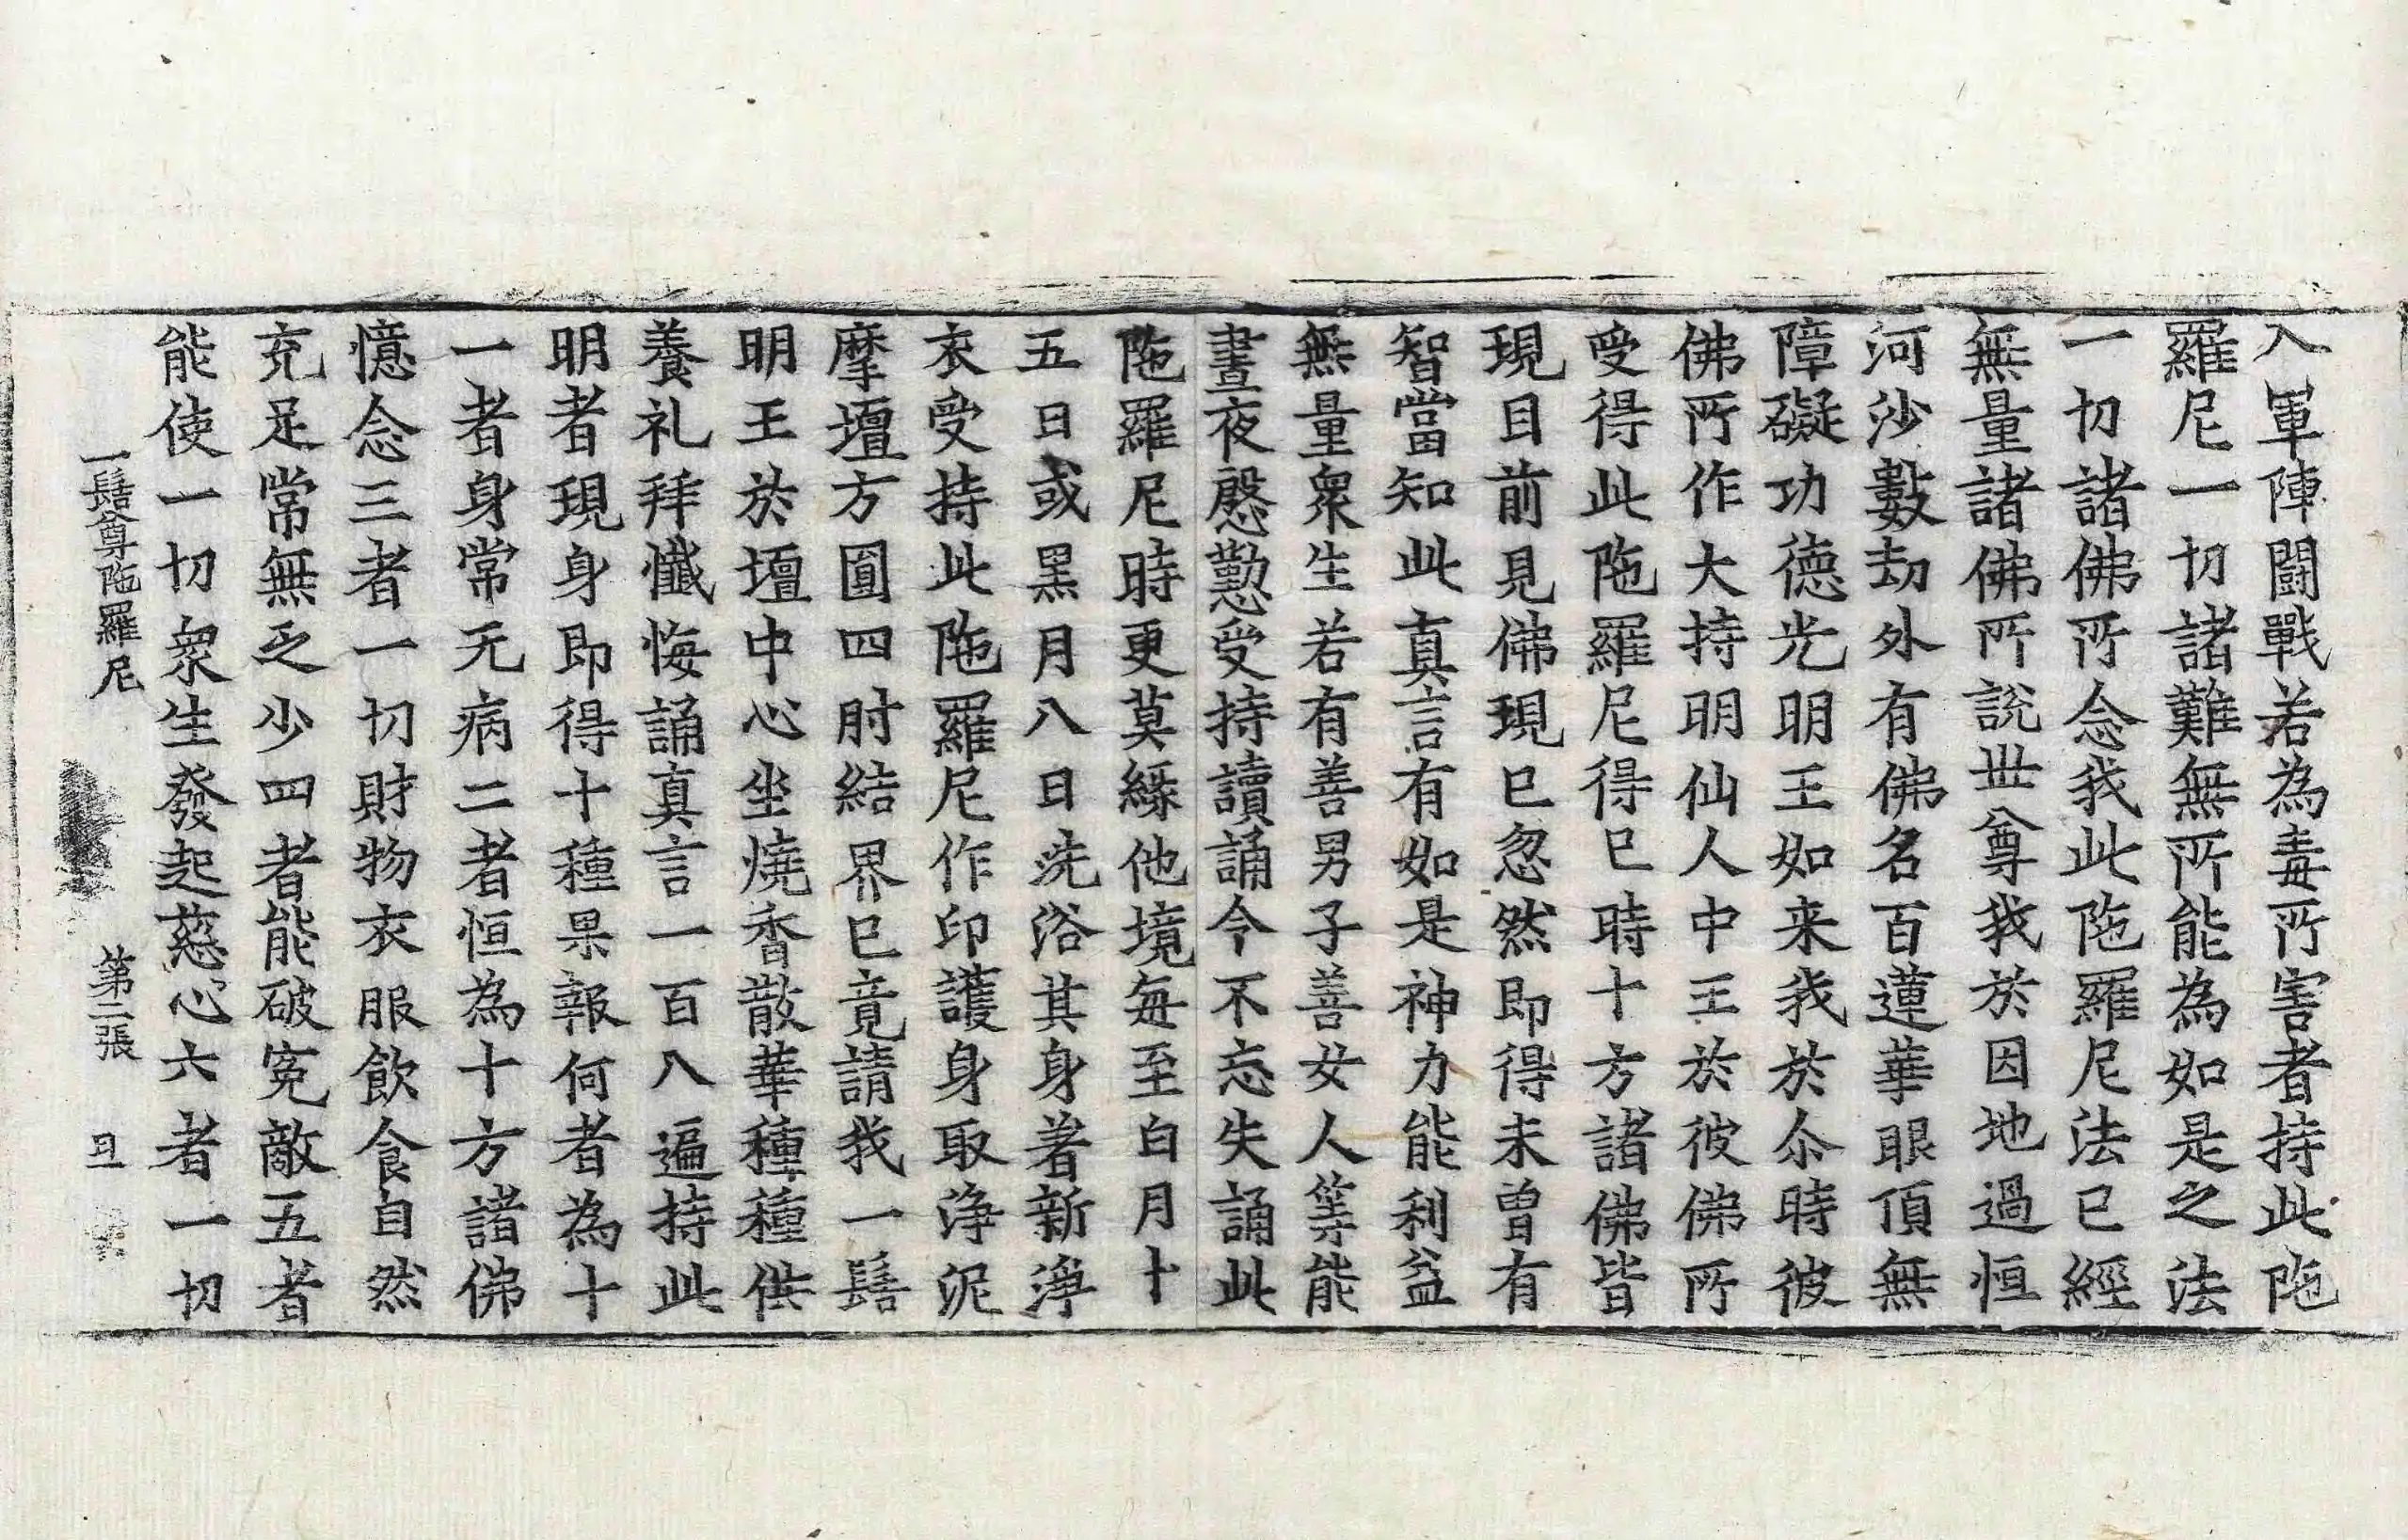 入軍陣鬪戰若為毒所害者持此陁
羅尼一切諸難無所能為如是之法
一切諸佛所念我此陁羅尼法已經
無量諸佛所說世尊我於因地過恒
河沙數劫外有佛名百蓮華眼頂無
障礙功德光明王如来我於尒時彼
佛所作大持明仙人中王於彼佛所
受得此陁羅尼得已時十方諸佛皆
現目前見佛現已忽然即得未曾有
智當知此真言有如是神力能利益
無量衆生若有善男子善女人等能
晝夜慇懃受持讀誦令不忘失誦此
陁羅尼時更莫緣他境每至白月十
五日或黑月八日洗浴其身著新淨
衣受持此陁羅尼作印護身取淨泥
摩壇方圓四肘結界已竟請我一髻
明王於壇中心坐燒香散華種種供
養礼拜懺悔誦真言一百八遍持此
明者現身即得十種果報何者為十
一者身常无病二者恒為十方諸佛
憶念三者一切財物衣服飲食自然
充足常無乏少四者能破寃敵五者
能使一切衆生發起慈心六者一切
一髻尊陁羅尼 第二張